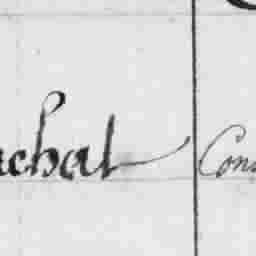 achat Cons